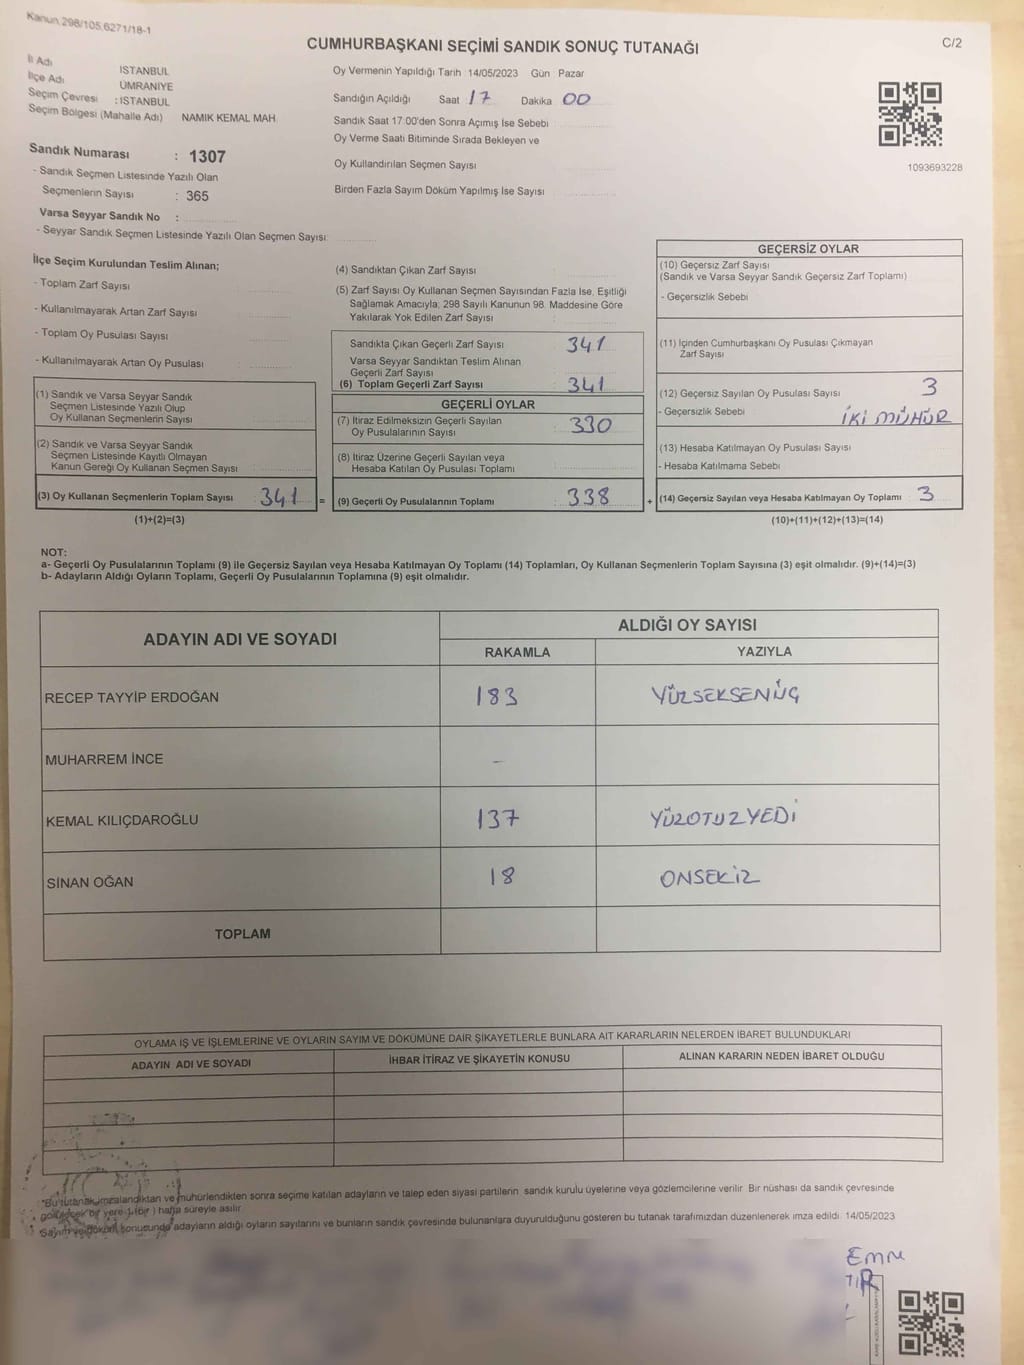 Kanun 298/105,6271/18-1
CUMHURBAŞKANI SEÇİMİ SANDIK SONUÇ TUTANAĞI
C/2
İl Adı İSTANBUL
İlçe Adı ÜMRANİYE
Seçim Çevresi : İSTANBUL
Seçim Bölgesi (Mahalle Adı) NAMIK KEMAL MAH.
Sandık Numarası : 1307
- Sandık Seçmen Listesinde Yazılı Olan
Seçmenlerin Sayısı : 365
Varsa Seyyar Sandık No :
- Seyyar Sandık Seçmen Listesinde Yazılı Olan Seçmen Sayısı:
Oy Vermenin Yapıldığı Tarih : 14/05/2023 Gün : Pazar
Sandığın Açıldığı Saat 17 Dakika 00
Sandık Saat 17:00'den Sonra Açılmış İse Sebebi
Oy Verme Saati Bitiminde Sırada Bekleyen ve
Oy Kullandırılan Seçmen Sayısı
Birden Fazla Sayım Döküm Yapılmış İse Sayısı
1093693228
İlçe Seçim Kurulundan Teslim Alınan;
- Toplam Zarf Sayısı
- Kullanılmayarak Artan Zarf Sayısı
- Toplam Oy Pusulası Sayısı
- Kullanılmayarak Artan Oy Pusulası
(1) Sandık ve Varsa Seyyar Sandık
Seçmen Listesinde Yazılı Olup
Oy Kullanan Seçmenlerin Sayısı
(2) Sandık ve Varsa Seyyar Sandık
Seçmen Listesinde Kayıtlı Olmayan
Kanun Gereği Oy Kullanan Seçmen Sayısı
(3) Oy Kullanan Seçmenlerin Toplam Sayısı : 341 =
(1)+(2)=(3)
(4) Sandıktan Çıkan Zarf Sayısı
(5) Zarf Sayısı Oy Kullanan Seçmen Sayısından Fazla İse, Eşitliği
Sağlamak Amacıyla, 298 Sayılı Kanunun 98. Maddesine Göre
Yakılarak Yok Edilen Zarf Sayısı
Sandıkta Çıkan Geçerli Zarf Sayısı 341
Varsa Seyyar Sandıktan Teslim Alınan
Geçerli Zarf Sayısı
(6) Toplam Geçerli Zarf Sayısı 341
GEÇERLİ OYLAR
(7) İtiraz Edilmeksizin Geçerli Sayılan
Oy Pusulalarının Sayısı 330
(8) İtiraz Üzerine Geçerli Sayılan veya
Hesaba Katılan Oy Pusulası Toplamı
(9) Geçerli Oy Pusulalarının Toplamı 338 +
GEÇERSİZ OYLAR
(10) Geçersiz Zarf Sayısı
(Sandık ve Varsa Seyyar Sandık Geçersiz Zarf Toplamı)
- Geçersizlik Sebebi
(11) İçinden Cumhurbaşkanı Oy Pusulası Çıkmayan
Zarf Sayısı
(12) Geçersiz Sayılan Oy Pusulası Sayısı 3
- Geçersizlik Sebebi İKİ MÜHÜR
(13) Hesaba Katılmayan Oy Pusulası Sayısı
- Hesaba Katılmama Sebebi
(14) Geçersiz Sayılan veya Hesaba Katılmayan Oy Toplamı : 3
(10)+(11)+(12)+(13)=(14)
NOT:
a- Geçerli Oy Pusulalarının Toplamı (9) ile Geçersiz Sayılan veya Hesaba Katılmayan Oy Toplamı (14) Toplamları, Oy Kullanan Seçmenlerin Toplam Sayısına (3) eşit olmalıdır. (9)+(14)=(3)
b- Adayların Aldığı Oyların Toplamı, Geçerli Oy Pusulalarının Toplamına (9) eşit olmalıdır.
ADAYIN ADI VE SOYADI ALDIĞI OY SAYISI
RAKAMLA YAZIYLA
RECEP TAYYİP ERDOĞAN 183 YÜZSEKSENÜÇ
MUHARREM İNCE -
KEMAL KILIÇDAROĞLU 137 YÜZOTUZYEDİ
SİNAN OĞAN 18 ONSEKİZ
TOPLAM
OYLAMA İŞ VE İŞLEMLERİNE VE OYLARIN SAYIM VE DÖKÜMÜNE DAİR ŞİKAYETLERLE BUNLARA AİT KARARLARIN NELERDEN İBARET BULUNDUKLARI
ADAYIN ADI VE SOYADI İHBAR İTİRAZ VE ŞİKAYETİN KONUSU ALINAN KARARIN NEDEN İBARET OLDUĞU
*Bu tutanak imzalandıktan ve mühürlendikten sonra seçime katılan adayların ve talep eden siyasi partilerin sandık kurulu üyelerine veya gözlemcilerine verilir. Bir nüshası da sandık çevresinde
bir yere 1 (bir) hafta süreyle asılır.
*Sayım ve döküm sonucunda adayların aldığı oyların sayılarını ve bunların sandık çevresinde bulunanlara duyurulduğunu gösteren bu tutanak tarafımızdan düzenlenerek imza edildi. 14/05/2023
Emre